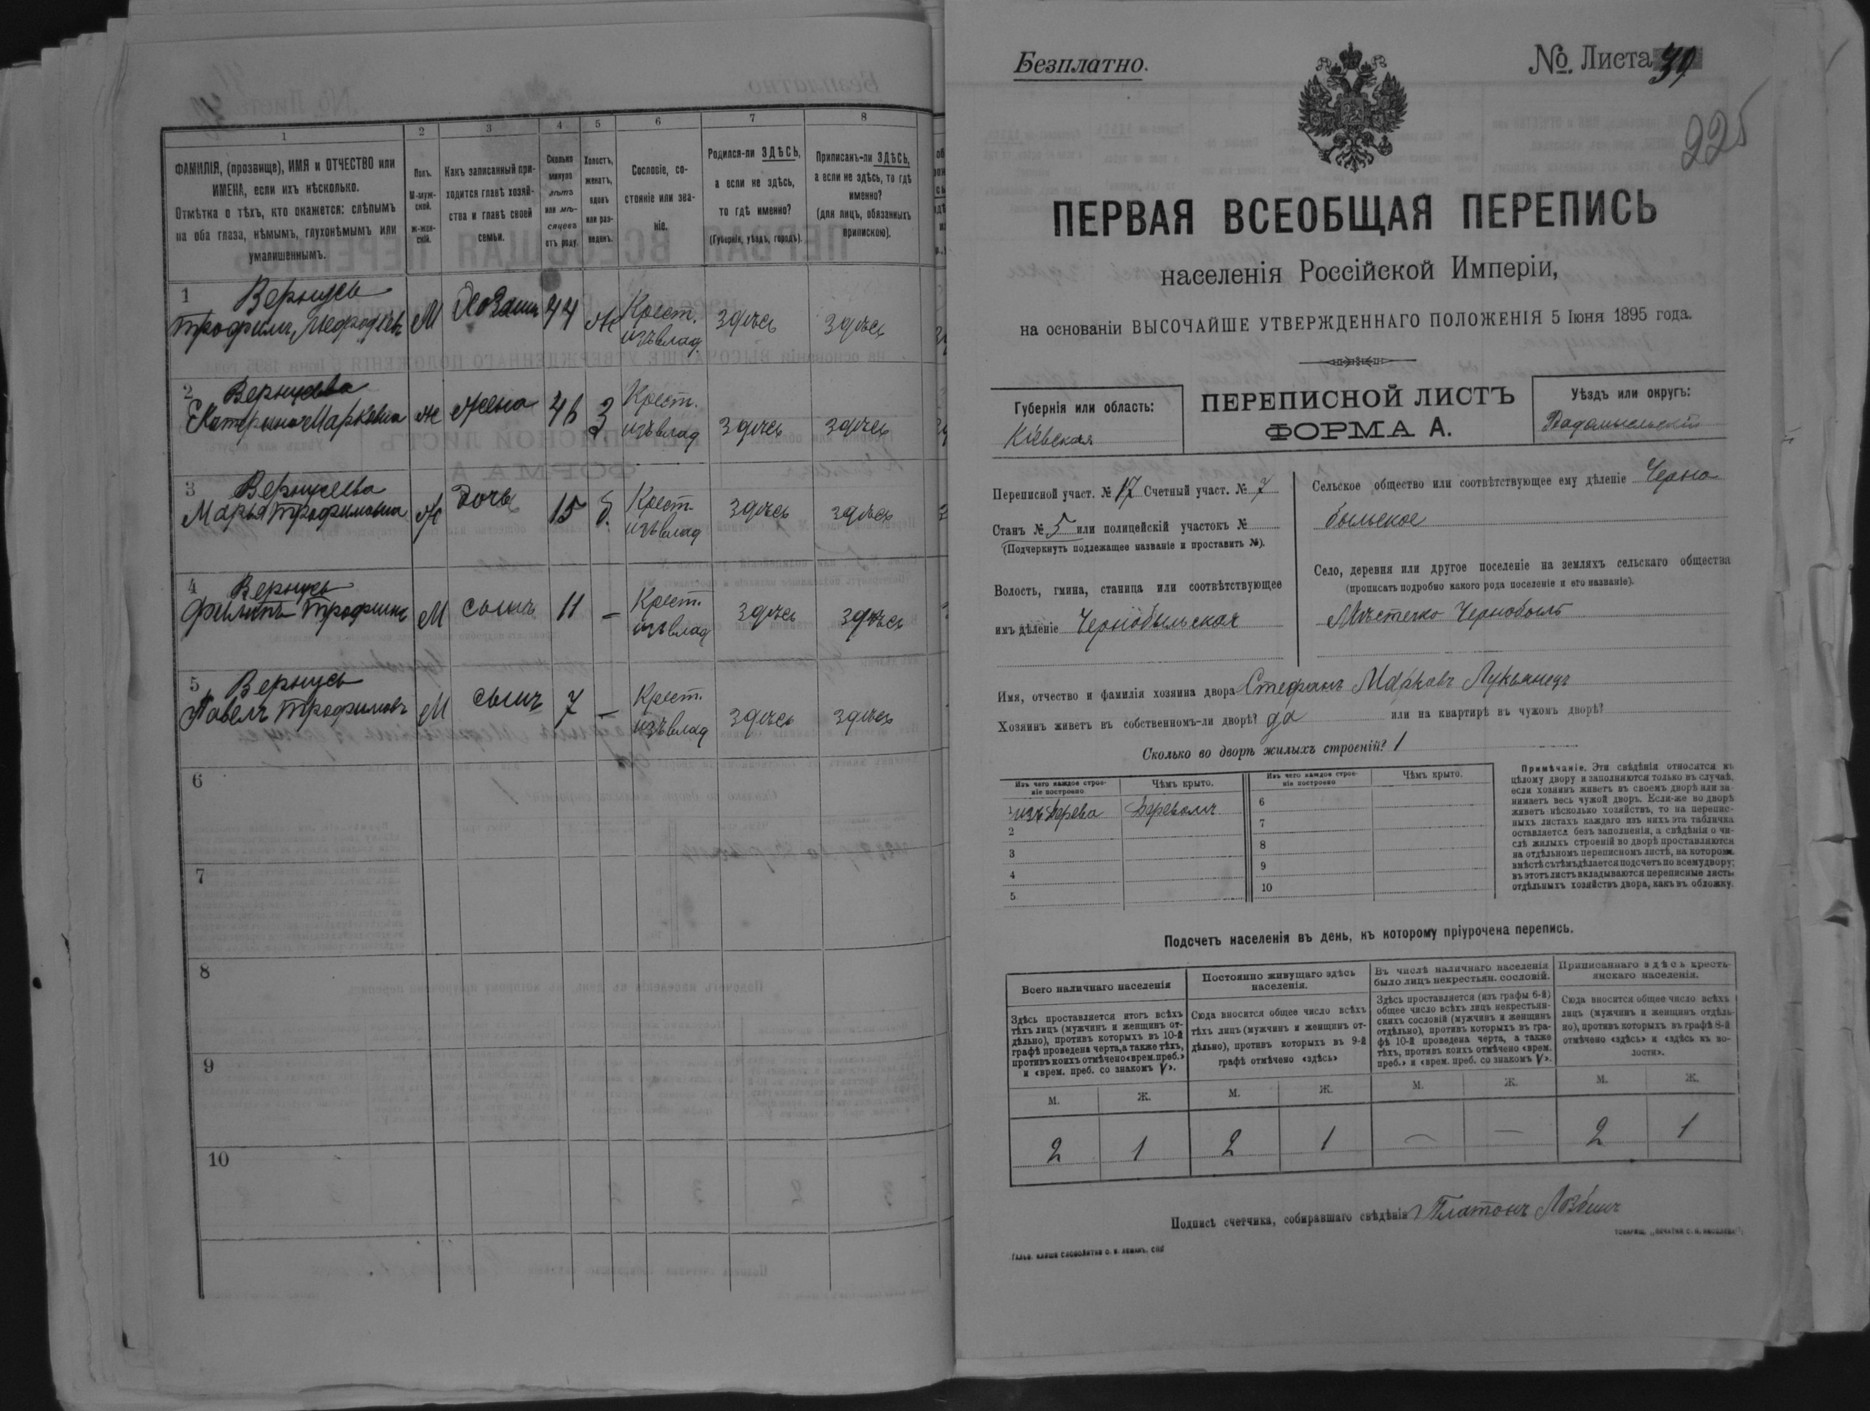 1
2
3
4
5
6
7
8
ФАМИЛІЯ, (прозвище), ИМЯ и ОТЧЕСТВО или
ИМЕНА, если ихъ нѣсколько.
Отмѣтка о тѣхъ, кто окажется: слѣпымъ
на оба глаза, нѣмымъ, глухонѣмымъ или
умалишеннымъ.
Полъ.
М-муж-
ской.
ж-жен-
скій.
Какъ записанный при-
ходится главѣ хозяй-
ства и главѣ своей
семьи.
Сколько
минуло
лѣтъ
или мѣ-
сяцевъ
отъ роду.
Холостъ,
женатъ,
вдовъ
или раз-
веденъ.
Сословіе, со-
стояніе или зва-
ніе.
Родился-ли ЗДѢСЬ,
а если не здѣсь,
то гдѣ именно?
(Губернія, уѣздъ, городъ).
Приписанъ-ли ЗДѢСЬ,
а если не здѣсь, то гдѣ
именно?
(для лицъ, обязанныхъ
припискою).
1
Вернусь
Трофимъ М Хозяинъ 44 ж Крест. изъ влад здѣсь здѣсь
2
Вернусева
Екатерина Маркевна ж жена 46 З Крест. изъ влад здѣсь здѣсь
3
Вернусева
Марья Трофимовна ж Дочь 15 Крест. изъ влад здѣсь здѣсь
4
Вернусь
Филипъ М сынъ 11 – Крест. изъ влад здѣсь здѣсь
5
Вернусь
Павелъ Трофимовъ М сынъ 7 – Крест. изъ влад здѣсь здѣсь
6
7
8
9
10
Безплатно.
№. Листа 39
225
ПЕРВАЯ ВСЕОБЩАЯ ПЕРЕПИСЬ
населенія Россійской Имперіи,
на основаніи ВЫСОЧАЙШЕ УТВЕРЖДЕННАГО ПОЛОЖЕНІЯ 5 Іюня 1895 года.
Губернія или область:
Кіевская
ПЕРЕПИСНОЙ ЛИСТЪ
ФОРМА А.
Уѣздъ или округъ:
Радомысльскій
Переписной участ. № 17 Счетный участ. № 7
Станъ № 5 или полицейскій участокъ №
(Подчеркнуть подлежащее названіе и проставить №).
Волость, гмина, станица или соотвѣтствующее
имъ дѣленіе Чернобыльская
Сельское общество или соотвѣтствующее ему дѣленіе Черно
быльское
Село, деревня или другое поселеніе на земляхъ сельскаго общества
(прописать подробно какого рода поселеніе и его названіе).
Мѣстечко Чернобыль
Имя, отчество и фамилія хозяина двора Стефанъ Марковъ Лукьянецъ
Хозяинъ живетъ въ собственномъ-ли дворѣ? да или на квартирѣ въ чужомъ дворѣ?
Сколько во дворѣ жилыхъ строеній? 1
Изъ чего каждое строе-
ніе построено
Чѣмъ крыто.
Изъ чего каждое строе-
ніе построено
Чѣмъ крыто.
1 изъ дерева Деревомъ
2
3
4
5
6
7
8
9
10
Примѣчаніе. Эти свѣдѣнія относятся къ
цѣлому двору и заполняются только въ случаѣ,
если хозяинъ живетъ въ своемъ дворѣ или за-
нимаетъ весь чужой дворъ. Если-же во дворѣ
живетъ нѣсколько хозяйствъ, то на перепис-
ныхъ листахъ каждаго изъ нихъ эта табличка
оставляется безъ заполненія, а свѣдѣнія о чи-
слѣ жилыхъ строеній во дворѣ проставляются
на отдѣльномъ переписномъ листѣ, на которомъ
вмѣстѣ съ тѣмъ дѣлается подсчетъ по всему двору;
въ этотъ листъ вкладываются переписные листы
отдѣльныхъ хозяйствъ двора, какъ въ обложку.
Подсчетъ населенія въ день, къ которому пріурочена перепись.
Всего наличнаго населенія
Постоянно живущаго здѣсь
населенія.
Въ числѣ наличнаго населенія
было лицъ некрестьян. сословій.
Приписаннаго здѣсь кресть-
янскаго населенія.
Здѣсь проставляется итогъ всѣхъ
тѣхъ лицъ (мужчинъ и женщинъ от-
дѣльно), противъ которыхъ въ 10-й
графѣ проведена черта, а также тѣхъ,
противъ коихъ отмѣчено «врем. преб.»
и «врем. преб. со знакомъ V».
Сюда вносится общее число всѣхъ
тѣхъ лицъ (мужчинъ и женщинъ от-
дѣльно), противъ которыхъ въ 9-й
графѣ отмѣчено «здѣсь»
Здѣсь проставляется (изъ графы 6-й)
общее число всѣхъ лицъ некрестьян-
скихъ сословій (мужчинъ и женщинъ
отдѣльно), противъ которыхъ въ гра-
фѣ 10-й проведена черта, а также
тѣхъ, противъ коихъ отмѣчено «врем.
преб.» и «врем. преб. со знакомъ V».
Сюда вносится общее число всѣхъ
лицъ (мужчинъ и женщинъ отдѣль-
но), противъ которыхъ въ графѣ 8-й
отмѣчено «здѣсь» и «здѣсь въ во-
лости».
М. Ж. М. Ж. М. Ж. М. Ж.
2 1 2 1 – – 2 1
Подпись счетчика, собиравшаго свѣдѣнія Платонъ